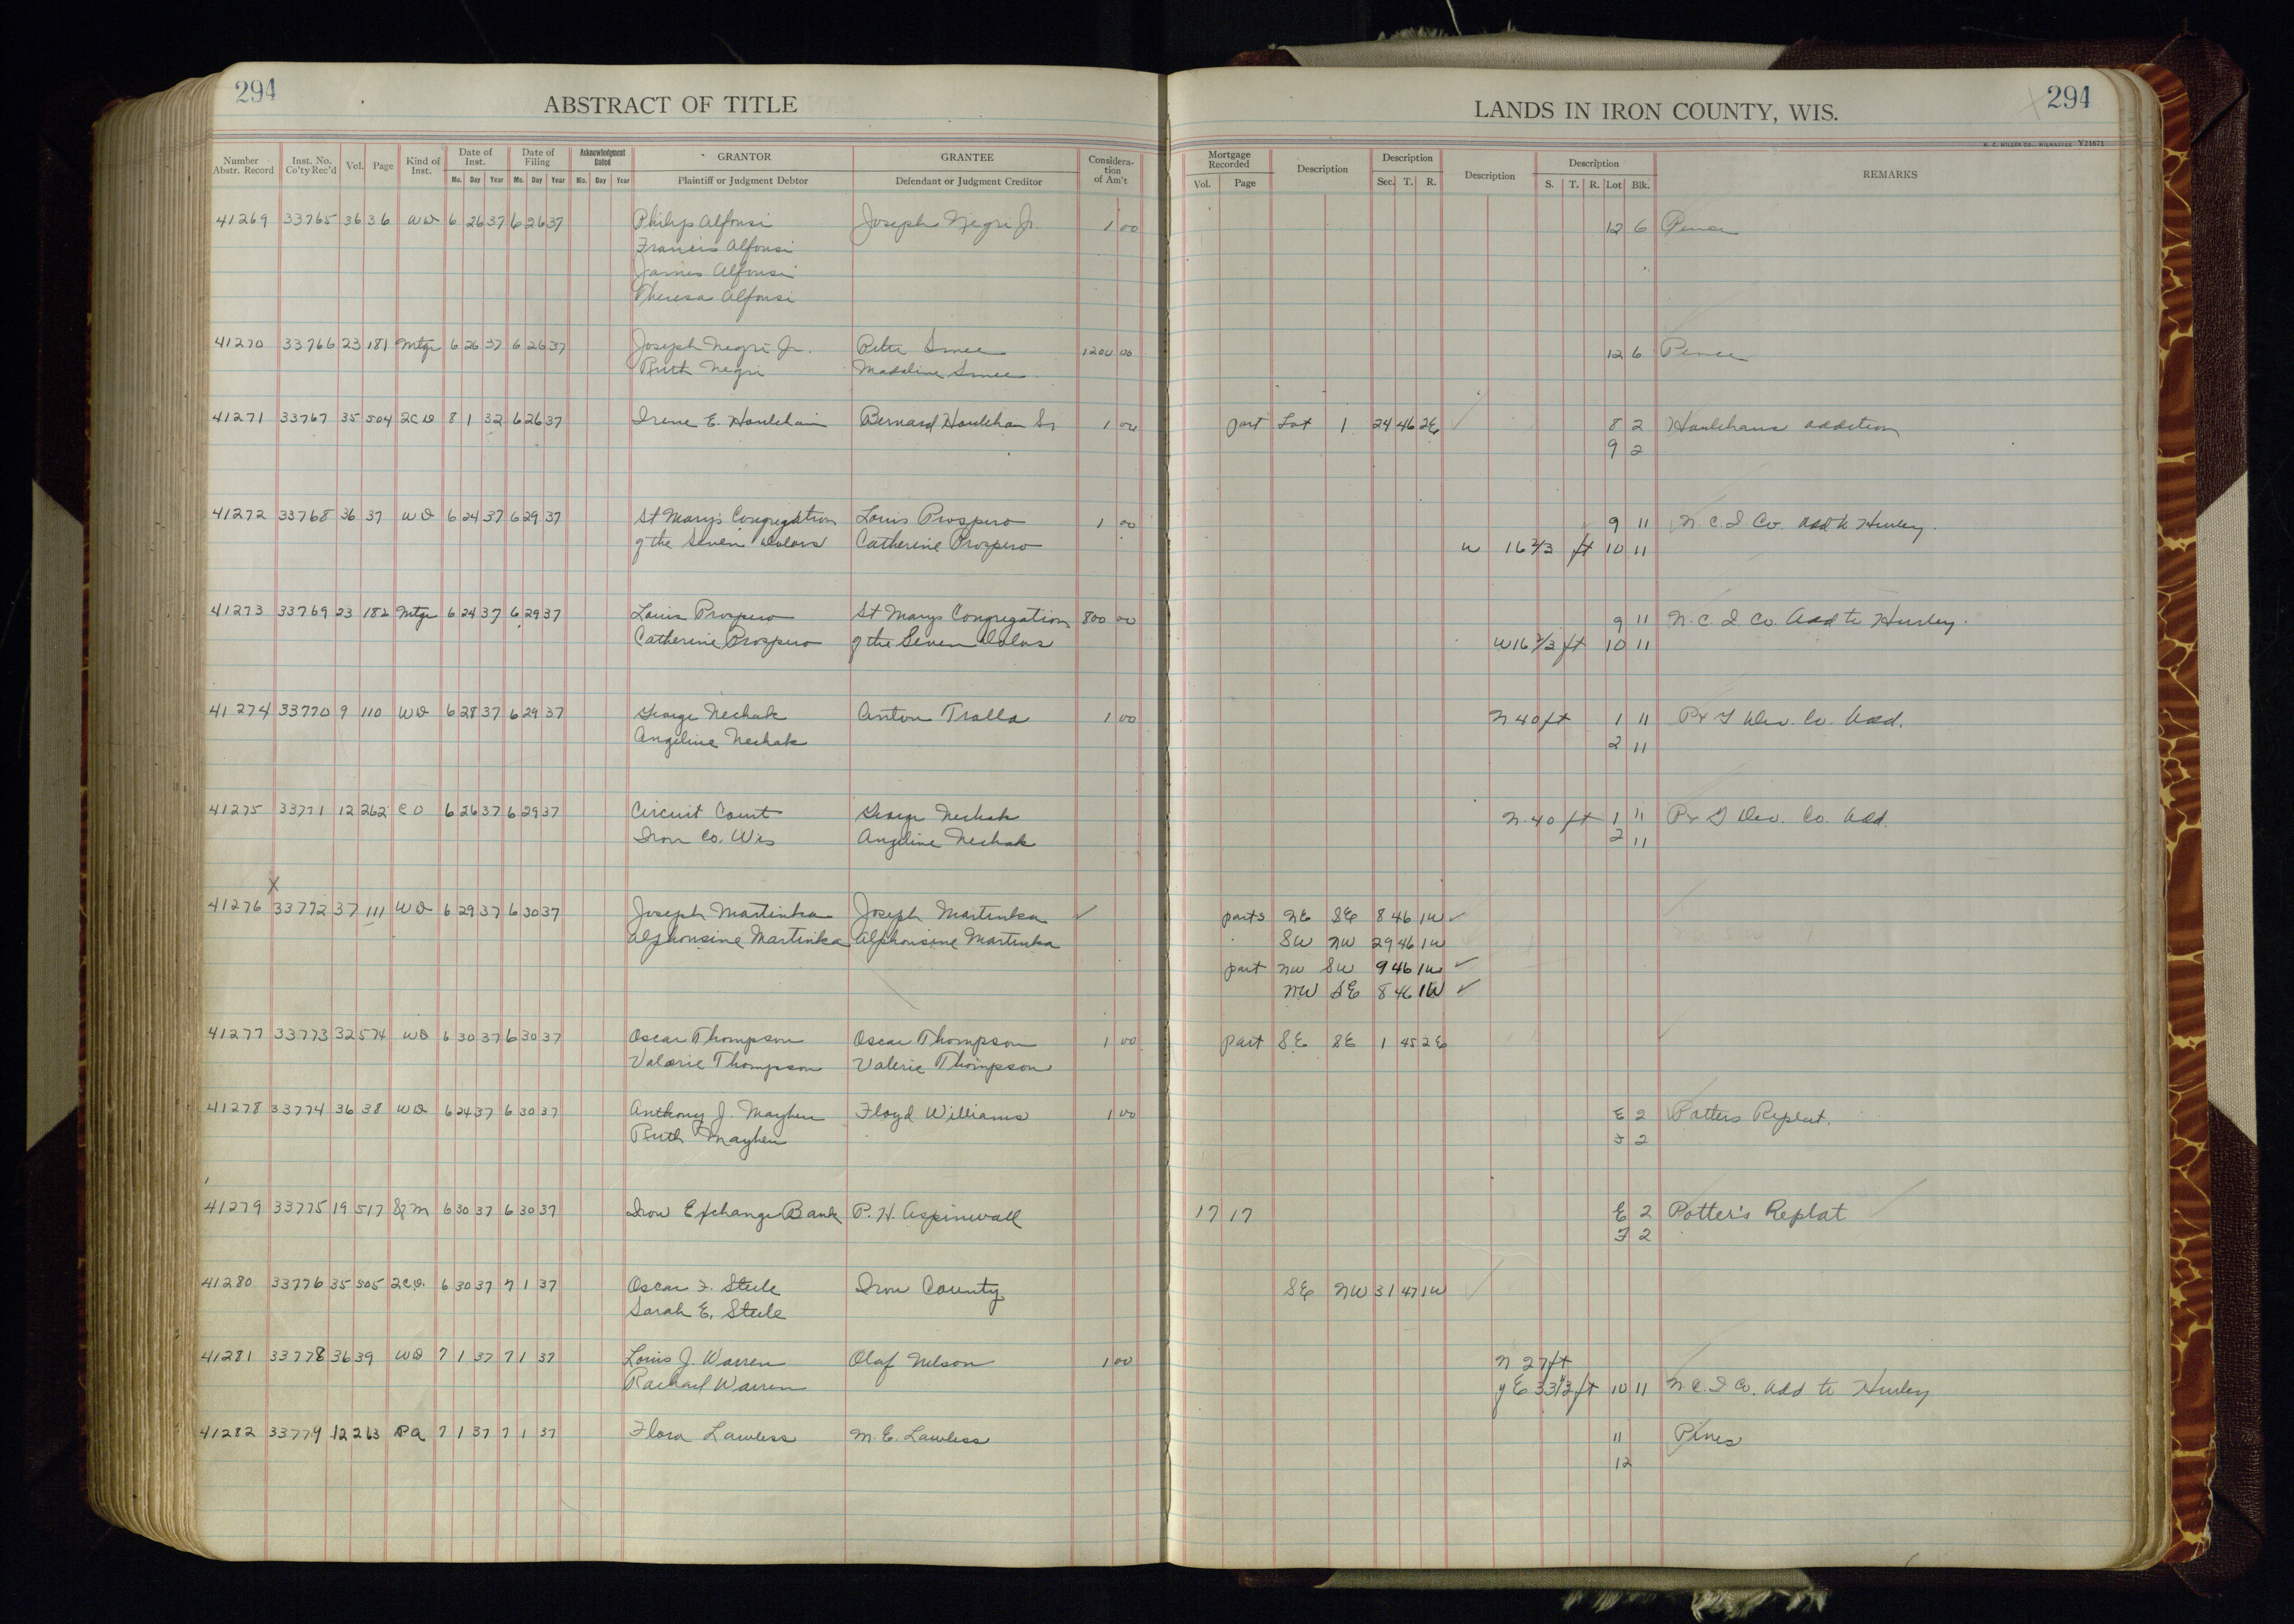 294
ABSTRACT OF TITLE
LANDS IN IRON COUNTY, WIS.
294
H. C. MILLER CO., MILWAUKEE Y21671
Number Abstr. Record Inst. No. Co'ty Rec'd Vol. Page Kind of Inst. Date of Inst. Mo. Day Year Date of Filing Mo. Day Year Acknowledgment Dated Mo. Day Year GRANTOR Plaintiff or Judgment Debtor GRANTEE Defendant or Judgment Creditor Consideration of Am't Mortgage Recorded Vol. Page Description Description Sec. T. R. Description Description S. T. R. Lot Blk. REMARKS
41269 33765 36 36 WD 6 26 37 6 26 37 Philip Alfonsi Joseph Negri Jr. 1 00 12 6 Pence
Francis Alfonsi
James Alfonsi
Theresa Alfonsi
41270 33766 23 181 Mtge 6 26 37 6 26 37 Joseph Negri Jr. Peter Smee 1200 00 12 6 Pence
Ruth Negri Madeline Smee
41271 33767 35 504 2CD 8 1 32 6 26 37 Irene E. Houlehan Bernard Houlehan Sr 1 00 part Lot 1 24 46 2E 8 2 Houlehans addition
9 2
41272 33768 36 37 WD 6 24 37 6 29 37 St Mary's Congregation Louis Prospero 1 00 9 11 N. C. I Co. Add to Hurley.
of the Seven Dolors Catherine Prospero W 16 2/3 ft 10 11
41273 33769 23 182 Mtge 6 24 37 6 29 37 Louis Prospero St Marys Congregation 800 00 9 11 N. C. I Co. Add to Hurley.
Catherine Prospero of the Seven Dolors W 16 2/3 ft 10 11
41274 33770 9 110 WD 6 28 37 6 29 37 George Nechak Anton Tralla 1 00 N 40 ft 1 11 P & G Dev. Co. Add.
Angeline Nechak 2 11
41275 33771 12 262 CD 6 26 37 6 29 37 Circuit Court George Nechak N 40 ft 1 11 P & G Dev. Co. Add.
Iron Co. Wis Angeline Nechak 2 11
X
41276 33772 37 111 WD 6 29 37 6 30 37 Joseph Martinka Joseph Martinka parts NE SE 8 46 1W
Alphonsine Martinka Alphonsine Martinka SW NW 29 46 1W
part NW SW 9 46 1W
NW SE 8 46 1W
41277 33773 32 574 WD 6 30 37 6 30 37 Oscar Thompson Oscar Thompson 1 00 part SE SE 1 45 2E
Valerie Thompson Valerie Thompson
41278 33774 36 38 WD 6 24 37 6 30 37 Anthony J. Mayhew Floyd Williams 1 00 E 2 Potters Replat.
Ruth Mayhew F 2
41279 33775 19 517 SM 6 30 37 6 30 37 Iron Exchange Bank P. H. Aspinwall 17 17 E 2 Potter's Replat
F 2
41280 33776 35 505 2CD. 6 30 37 7 1 37 Oscar F. Steele Iron County SE NW 31 47 1W
Sarah E. Steele
41281 33778 36 39 WD 7 1 37 7 1 37 Louis J. Warren Olaf Nelson 1 00 N 27 ft
Rachael Warren of E 33 1/3 ft 10 11 N. C. I Co. Add to Hurley
41282 33779 12 263 PA 7 1 37 7 1 37 Flora Lawless M. E. Lawless 11 Pines
12